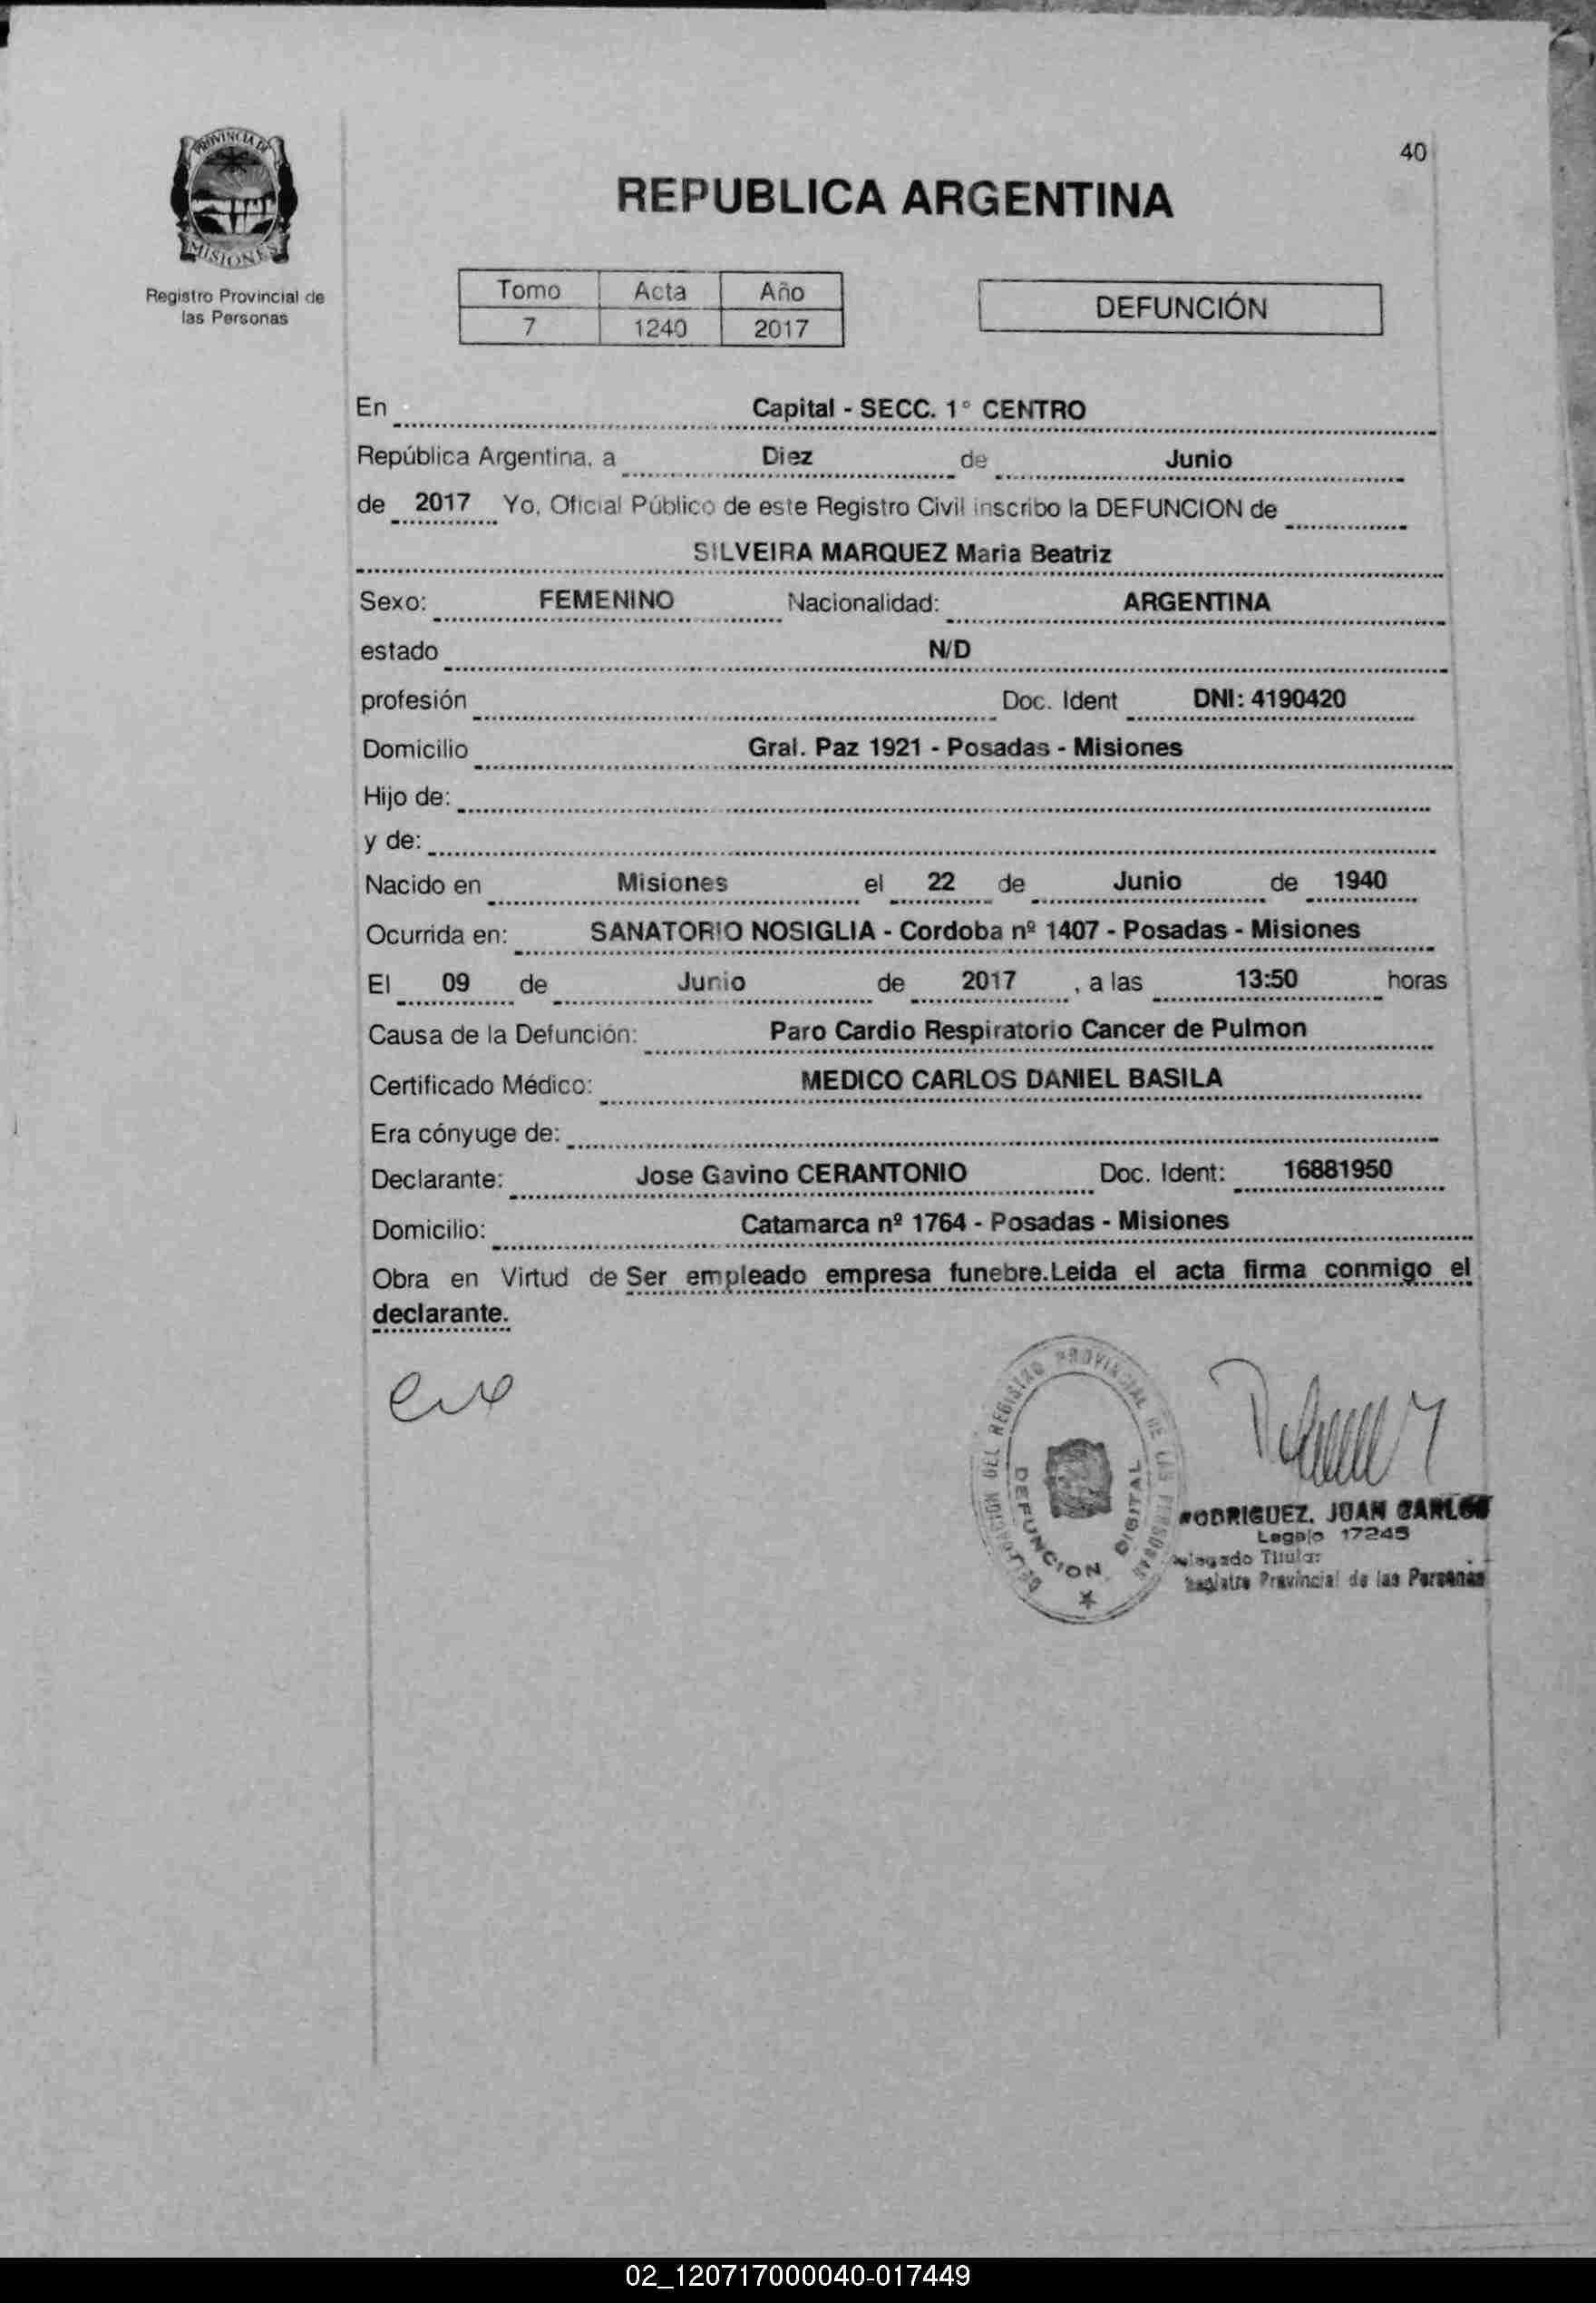 PROVINCIA DE
MISIONES
Registro Provincial de
las Personas
40
REPUBLICA ARGENTINA
Tomo Acta Año
7 1240 2017
DEFUNCIÓN
En Capital - SECC. 1° CENTRO
República Argentina, a Diez de Junio
de 2017 Yo, Oficial Público de este Registro Civil inscribo la DEFUNCION de
SILVEIRA MARQUEZ Maria Beatriz
Sexo: FEMENINO Nacionalidad: ARGENTINA
estado N/D
profesión Doc. Ident DNI: 4190420
Domicilio Gral. Paz 1921 - Posadas - Misiones
Hijo de:
y de:
Nacido en Misiones el 22 de Junio de 1940
Ocurrida en: SANATORIO NOSIGLIA - Cordoba nº 1407 - Posadas - Misiones
El 09 de Junio de 2017 , a las 13:50 horas
Causa de la Defunción: Paro Cardio Respiratorio Cancer de Pulmon
Certificado Médico: MEDICO CARLOS DANIEL BASILA
Era cónyuge de:
Declarante: Jose Gavino CERANTONIO Doc. Ident: 16881950
Domicilio: Catamarca nº 1764 - Posadas - Misiones
Obra en Virtud de Ser empleado empresa funebre.Leida el acta firma conmigo el
declarante.
DELEGACION DEL REGISTRO PROVINCIAL DE LAS PERSONAS
DEFUNCION DIGITAL
RODRIGUEZ, JUAN CARLOS
Legajo 17245
Delegado Titular
Registro Provincial de las Personas
02_120717000040-017449